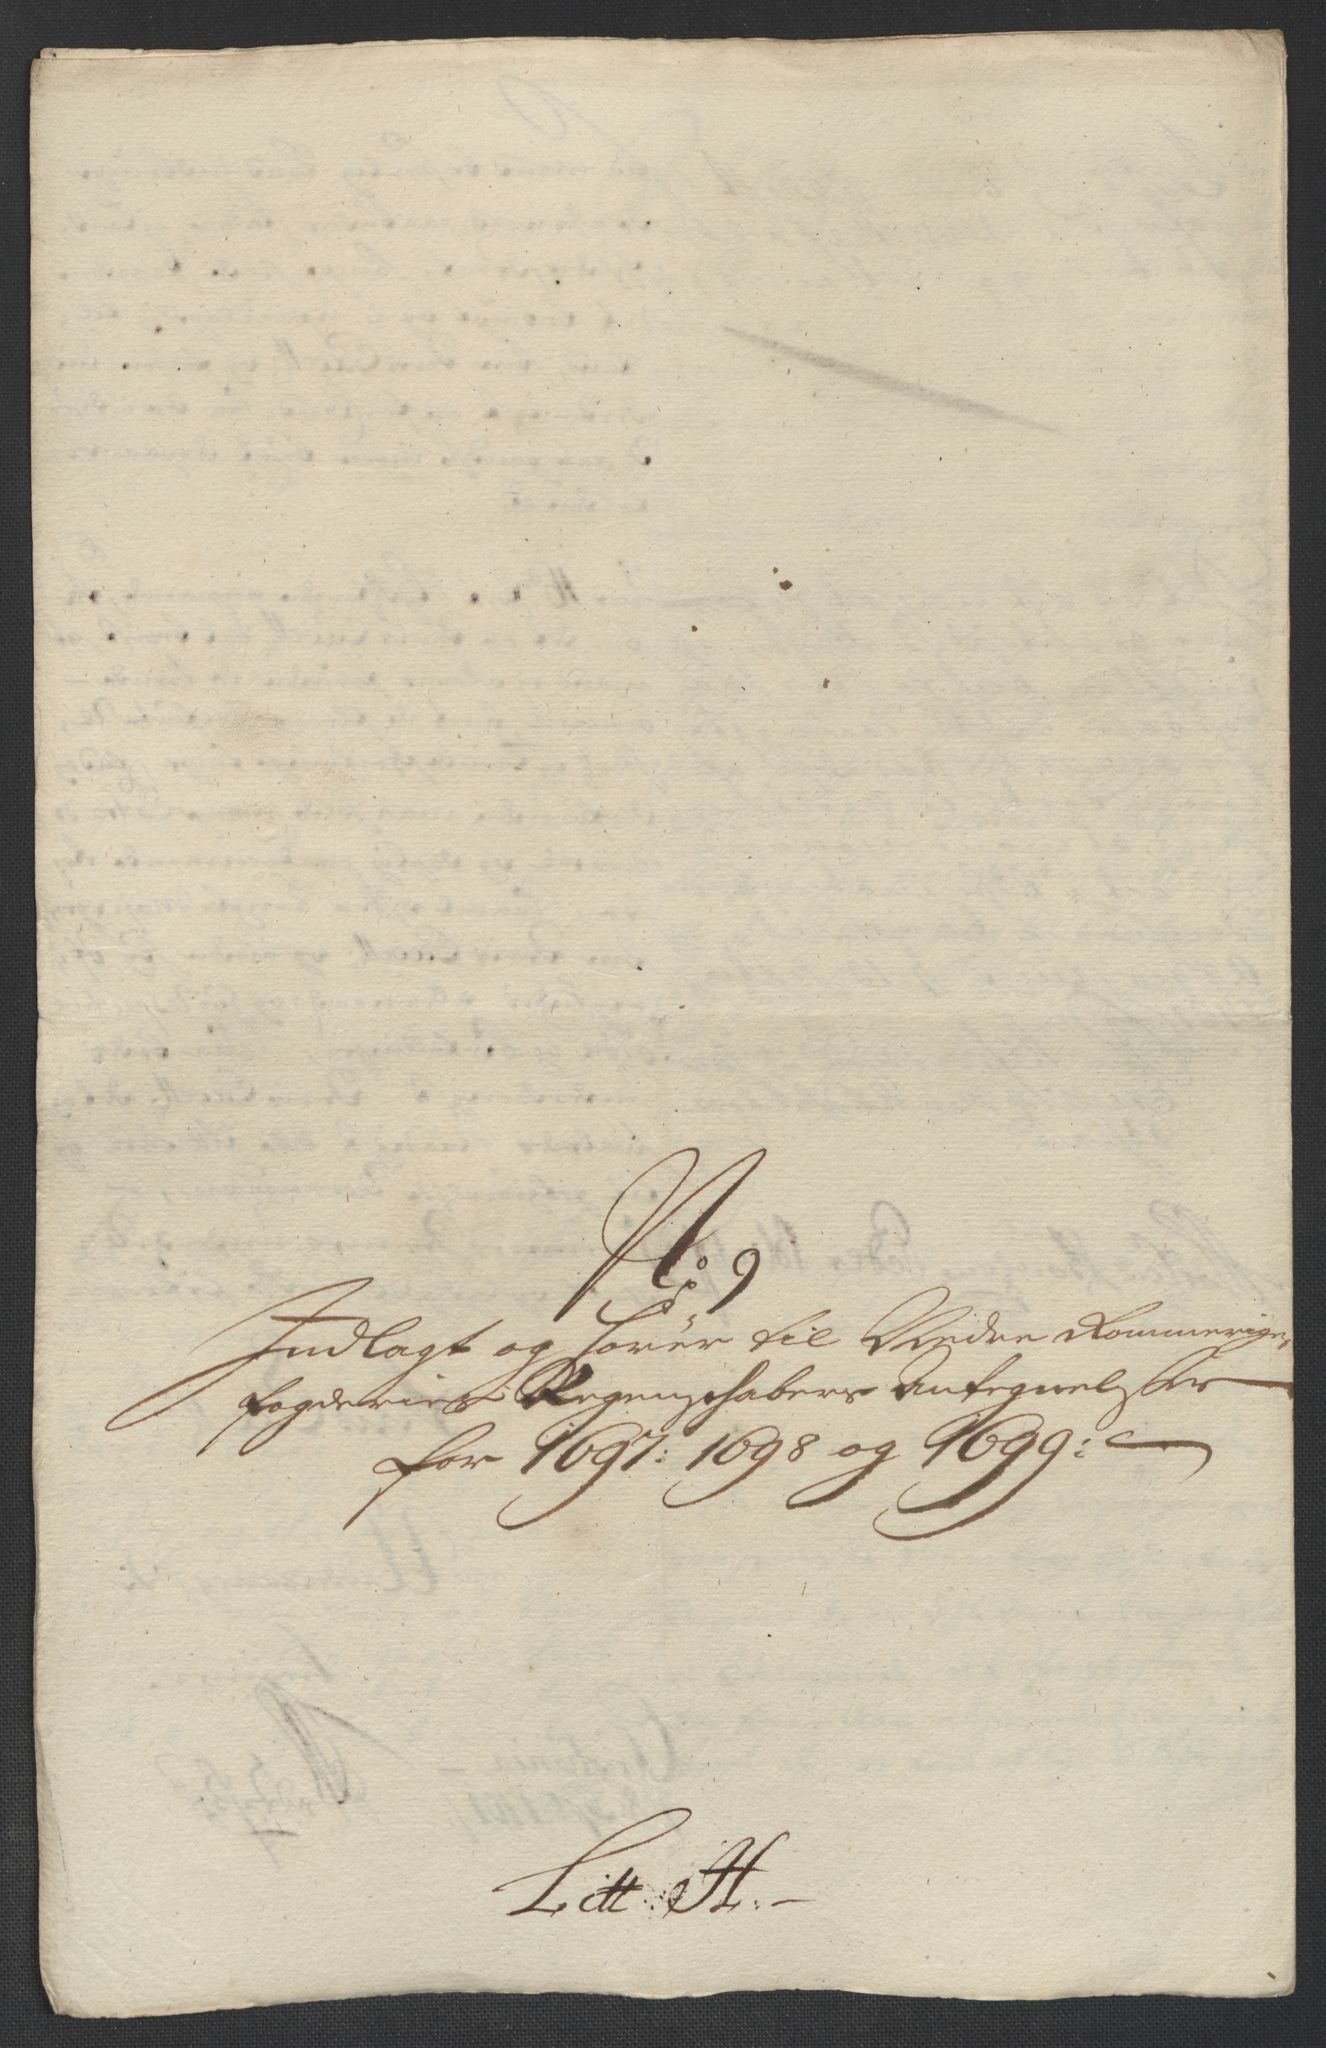 No: 9
Indlagt og hörer til Nedre Rommerigs
fogderies Regenschabers Antegnelsser
for 1697: 1698 og 1699:
Litt: H: